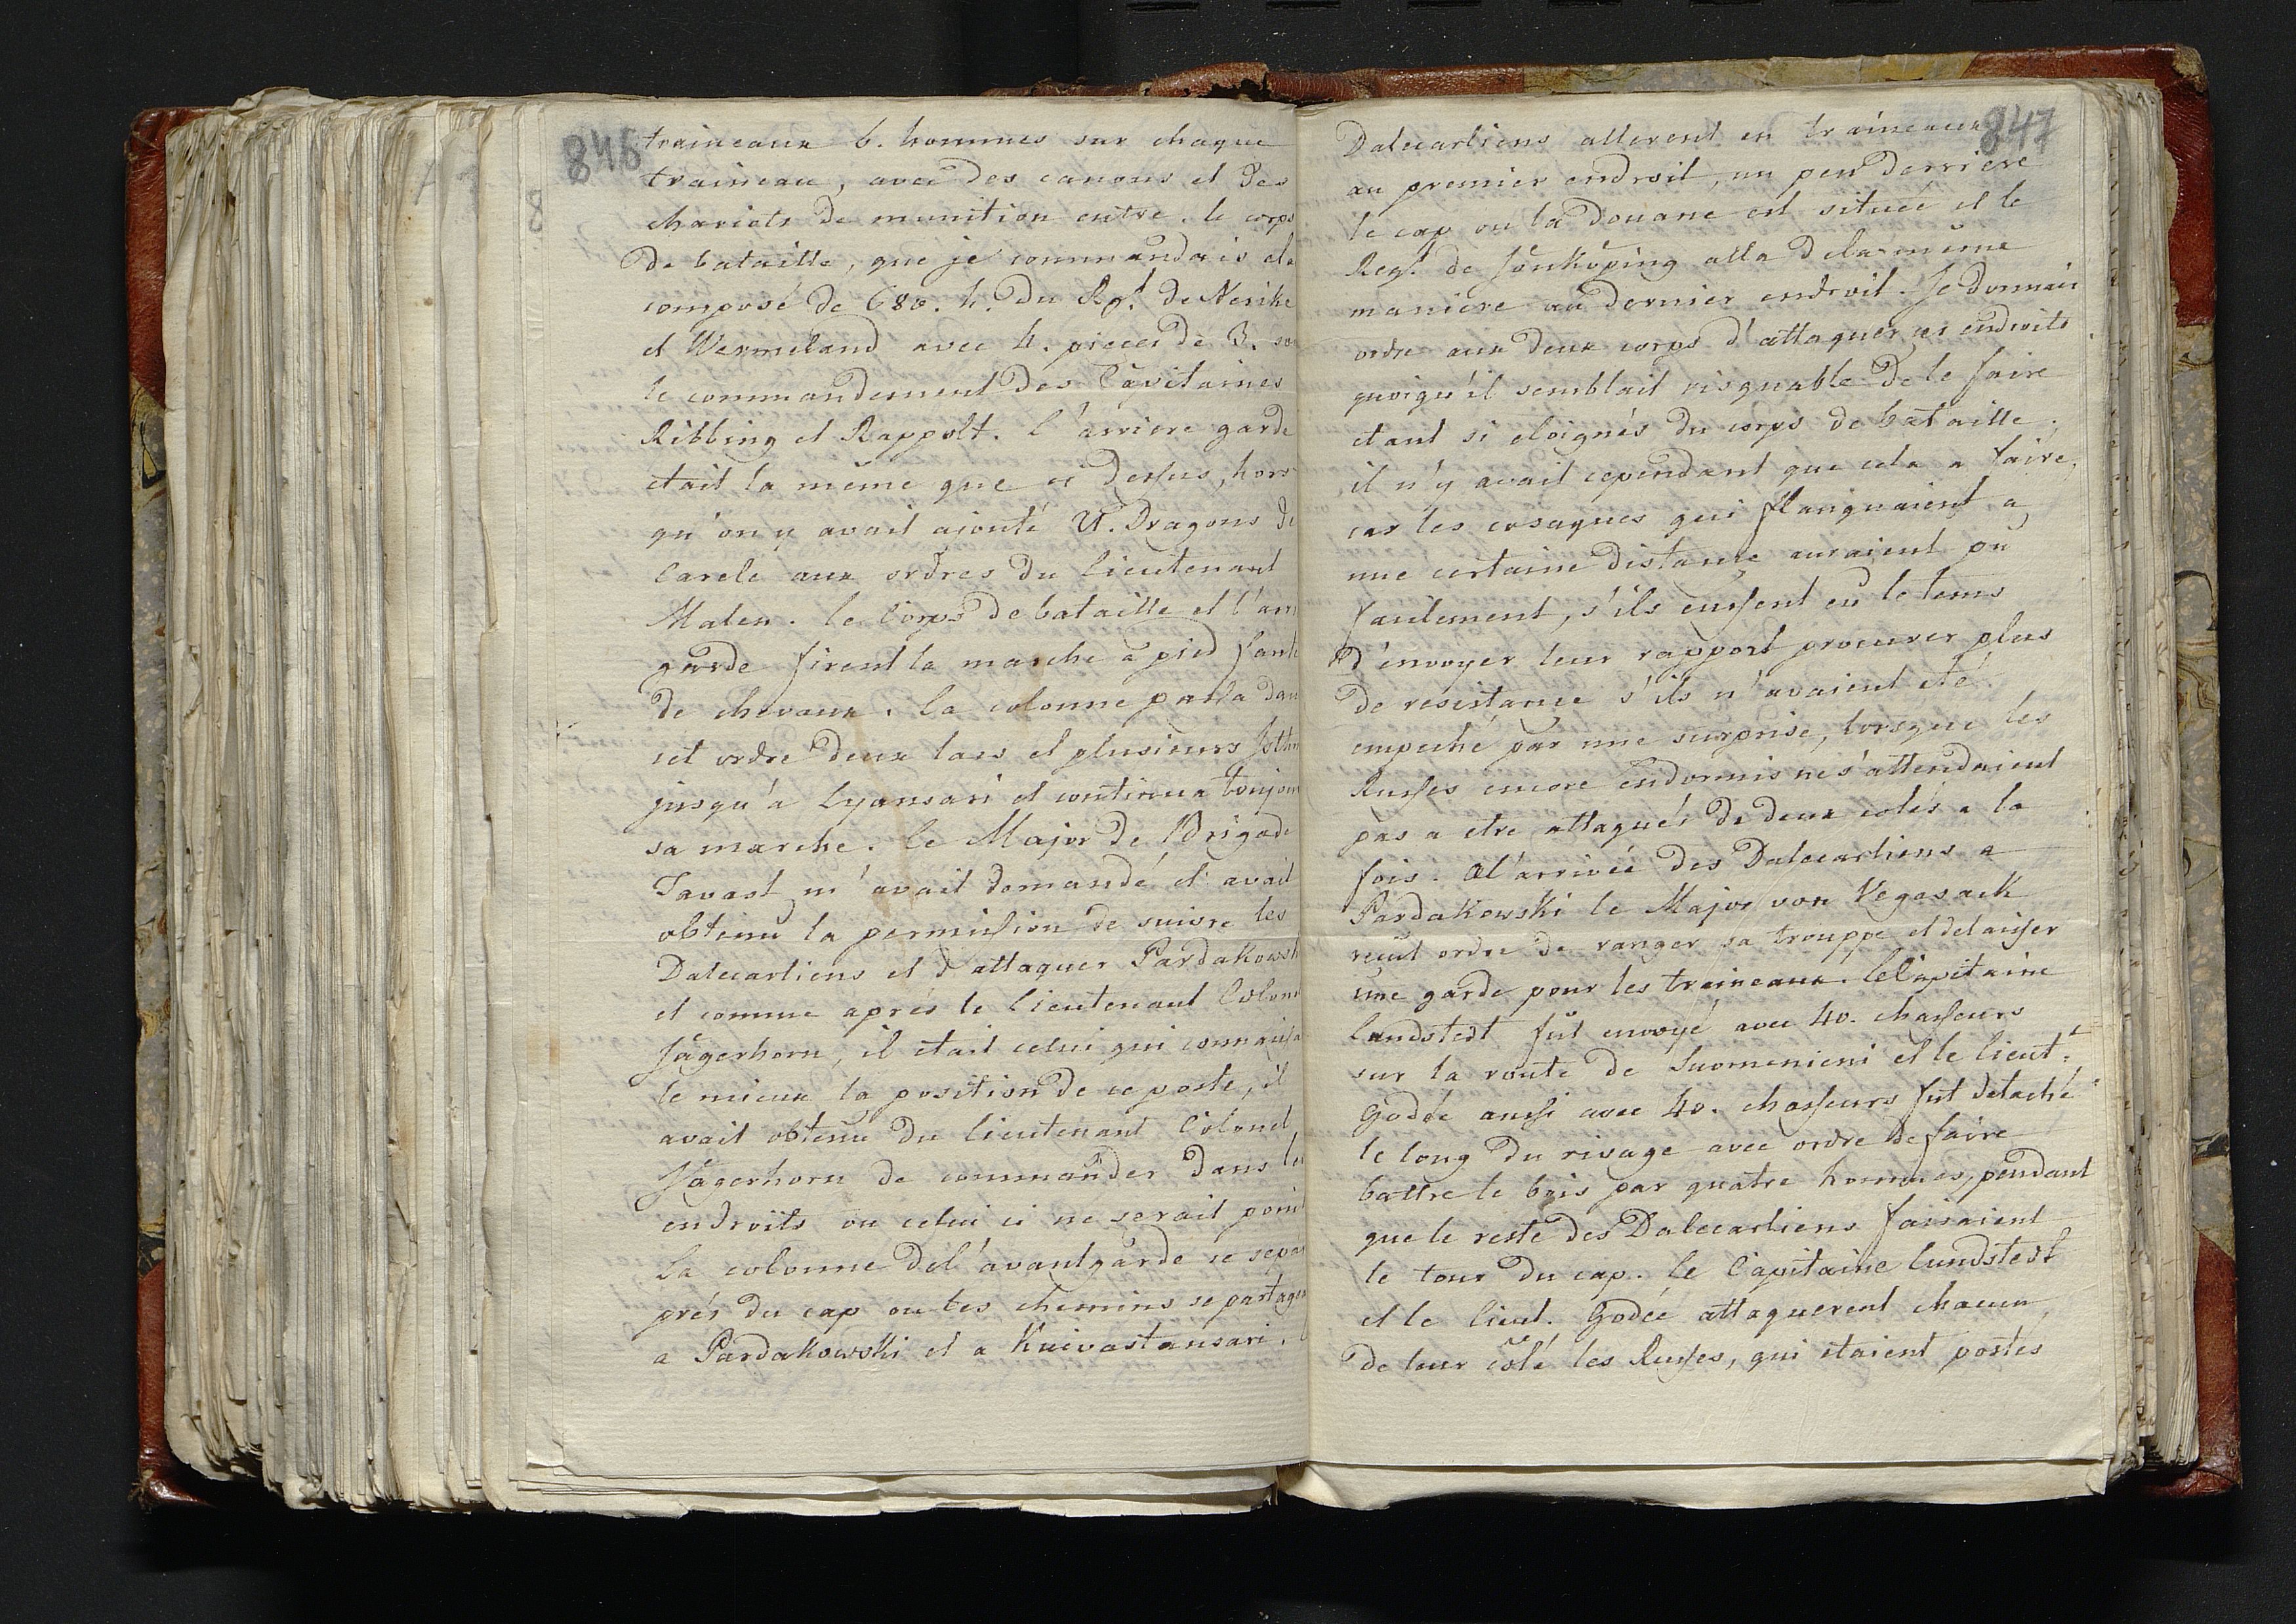 846
traineaux 6. hommes sur chaque
traineau, avec des canons et des
chariots de munition entre. le corps
de bataille, que je commandais ela
composé de 680. h. du Rgt. de Nerike
et Wermeland avec 4. pieces de 3. so
le commandement des Capitaines
Ribbing et Rappolt. l'arriere garde
etait la même que ci dessus, hors
qu'on y avait ajouté U. Dragons de
Carele aux ordres du Lieutenant
Malen. le Corps de bataille et l'arr
garde firent la marche a pied faute
de chevaux. la colonne passa dan
cet ordre deux lacs et plusieurs Isth
jusqu'a Lyansari et continua toujou
sa marche. le Major de Brigade
Tavast m'avait demandé et avait
obtenu la permission de suivre les
Dalecarliens et d'attaquer Pardakowsk
et comme aprés le Lieutenant Colone
Jägerhorn, il etait celui qui connaissa
le mieux la position de ce poste, il
avait obtenu du Lieutenant Colonel
Jägerhorn de commander dans les
endroits ou celui ci ne serait point
La colonne del'avantgarde se sepa
prés du cap ou les chemins se partage
a Pardakowski et a Kuivastansari.
847
Dalecarliens allerent en traineaux
au premier endroit, un peu derriere
le cap ou la Douane est située et le
Regt. de Jönköping alla dela même
maniere au dernier endroit. Je donnais
ordre aux deux corps d'attaquer ces endroits
quoiqu'il semblait risquable de le faire
etant si eloignés du corps de bataille.
il n'y avait cependant que cela a faire,
car les cosaques qui flanquaient a
une certaine distance auraient pu
facilement, s'ils eussent eu le tems
d'envoyer leur rapport procurer plus
de resistance s'ils n'avaient eté
empeché par une surprise, lorsque les
Russes encore endormis ne s'attendaient
pas a etre attaqués de deux cotés a la
fois. A l'arrivée des Dalecarliens a
Pardakowski le Major von Vegasack
recut ordre de ranger sa trouppe et delaisser
une garde pour les traineaux. le Capitaine
Lundstedt fut envoyé avec 40. chasseurs
sur la route de Suomenieni et le Lieut.
Godée aussi avec 40. chasseurs fut detaché
le long du rivage avec ordre de faire
battre le bois par quatre hommes, pendant
que le reste des Dalecarliens faisaient
le tour du cap. le Capitaine Lundstedt
et le Lieut. Godée attaquerent chacun
de leur coté les Russes, qui etaient postés